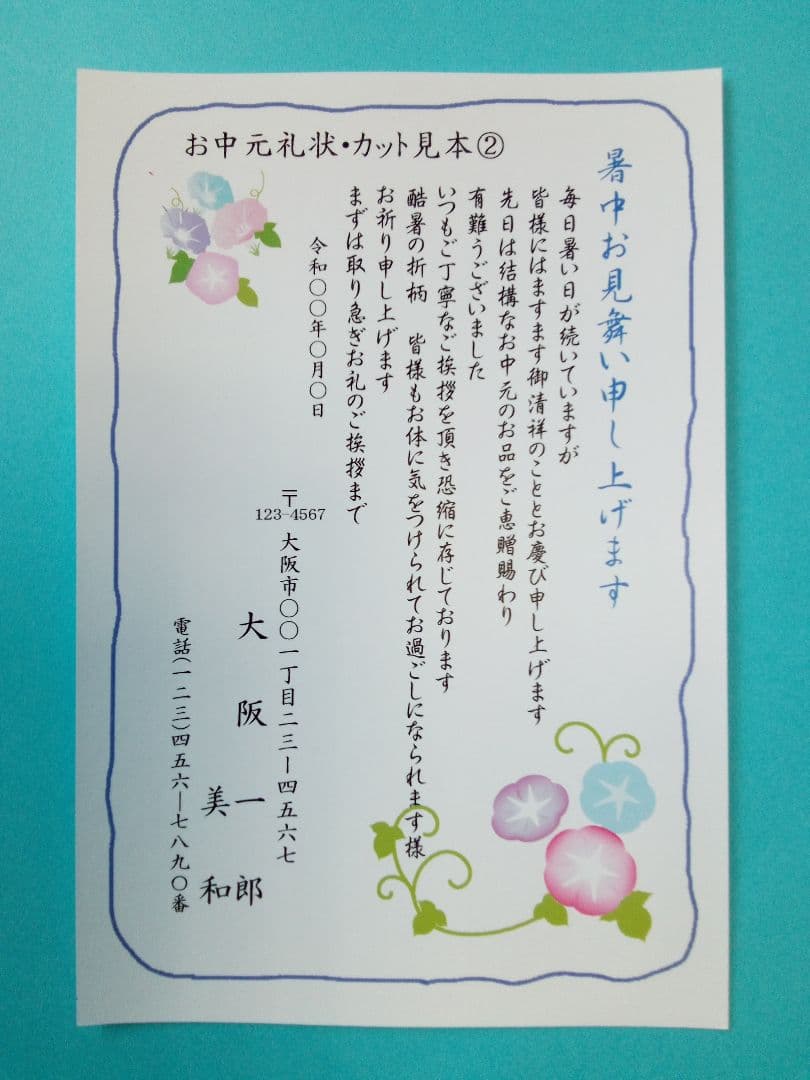 お中元礼状・カット見本②
暑中お見舞い申し上げます
毎日暑い日が続いていますが
皆様にはますます御清祥のこととお慶び申し上げます
先日は結構なお中元のお品をご恵贈賜わり
有難うございました
いつもご丁寧なご挨拶を頂き恐縮に存じております
酷暑の折柄 皆様もお体に気をつけられてお過ごしになられます様
お祈り申し上げます
まずは取り急ぎお礼のご挨拶まで
令和〇〇年〇月〇日
〒
123-4567
大阪市〇〇一丁目二三ー四五六七
大阪一郎
美和
電話(一二三)四五六―七八九〇番